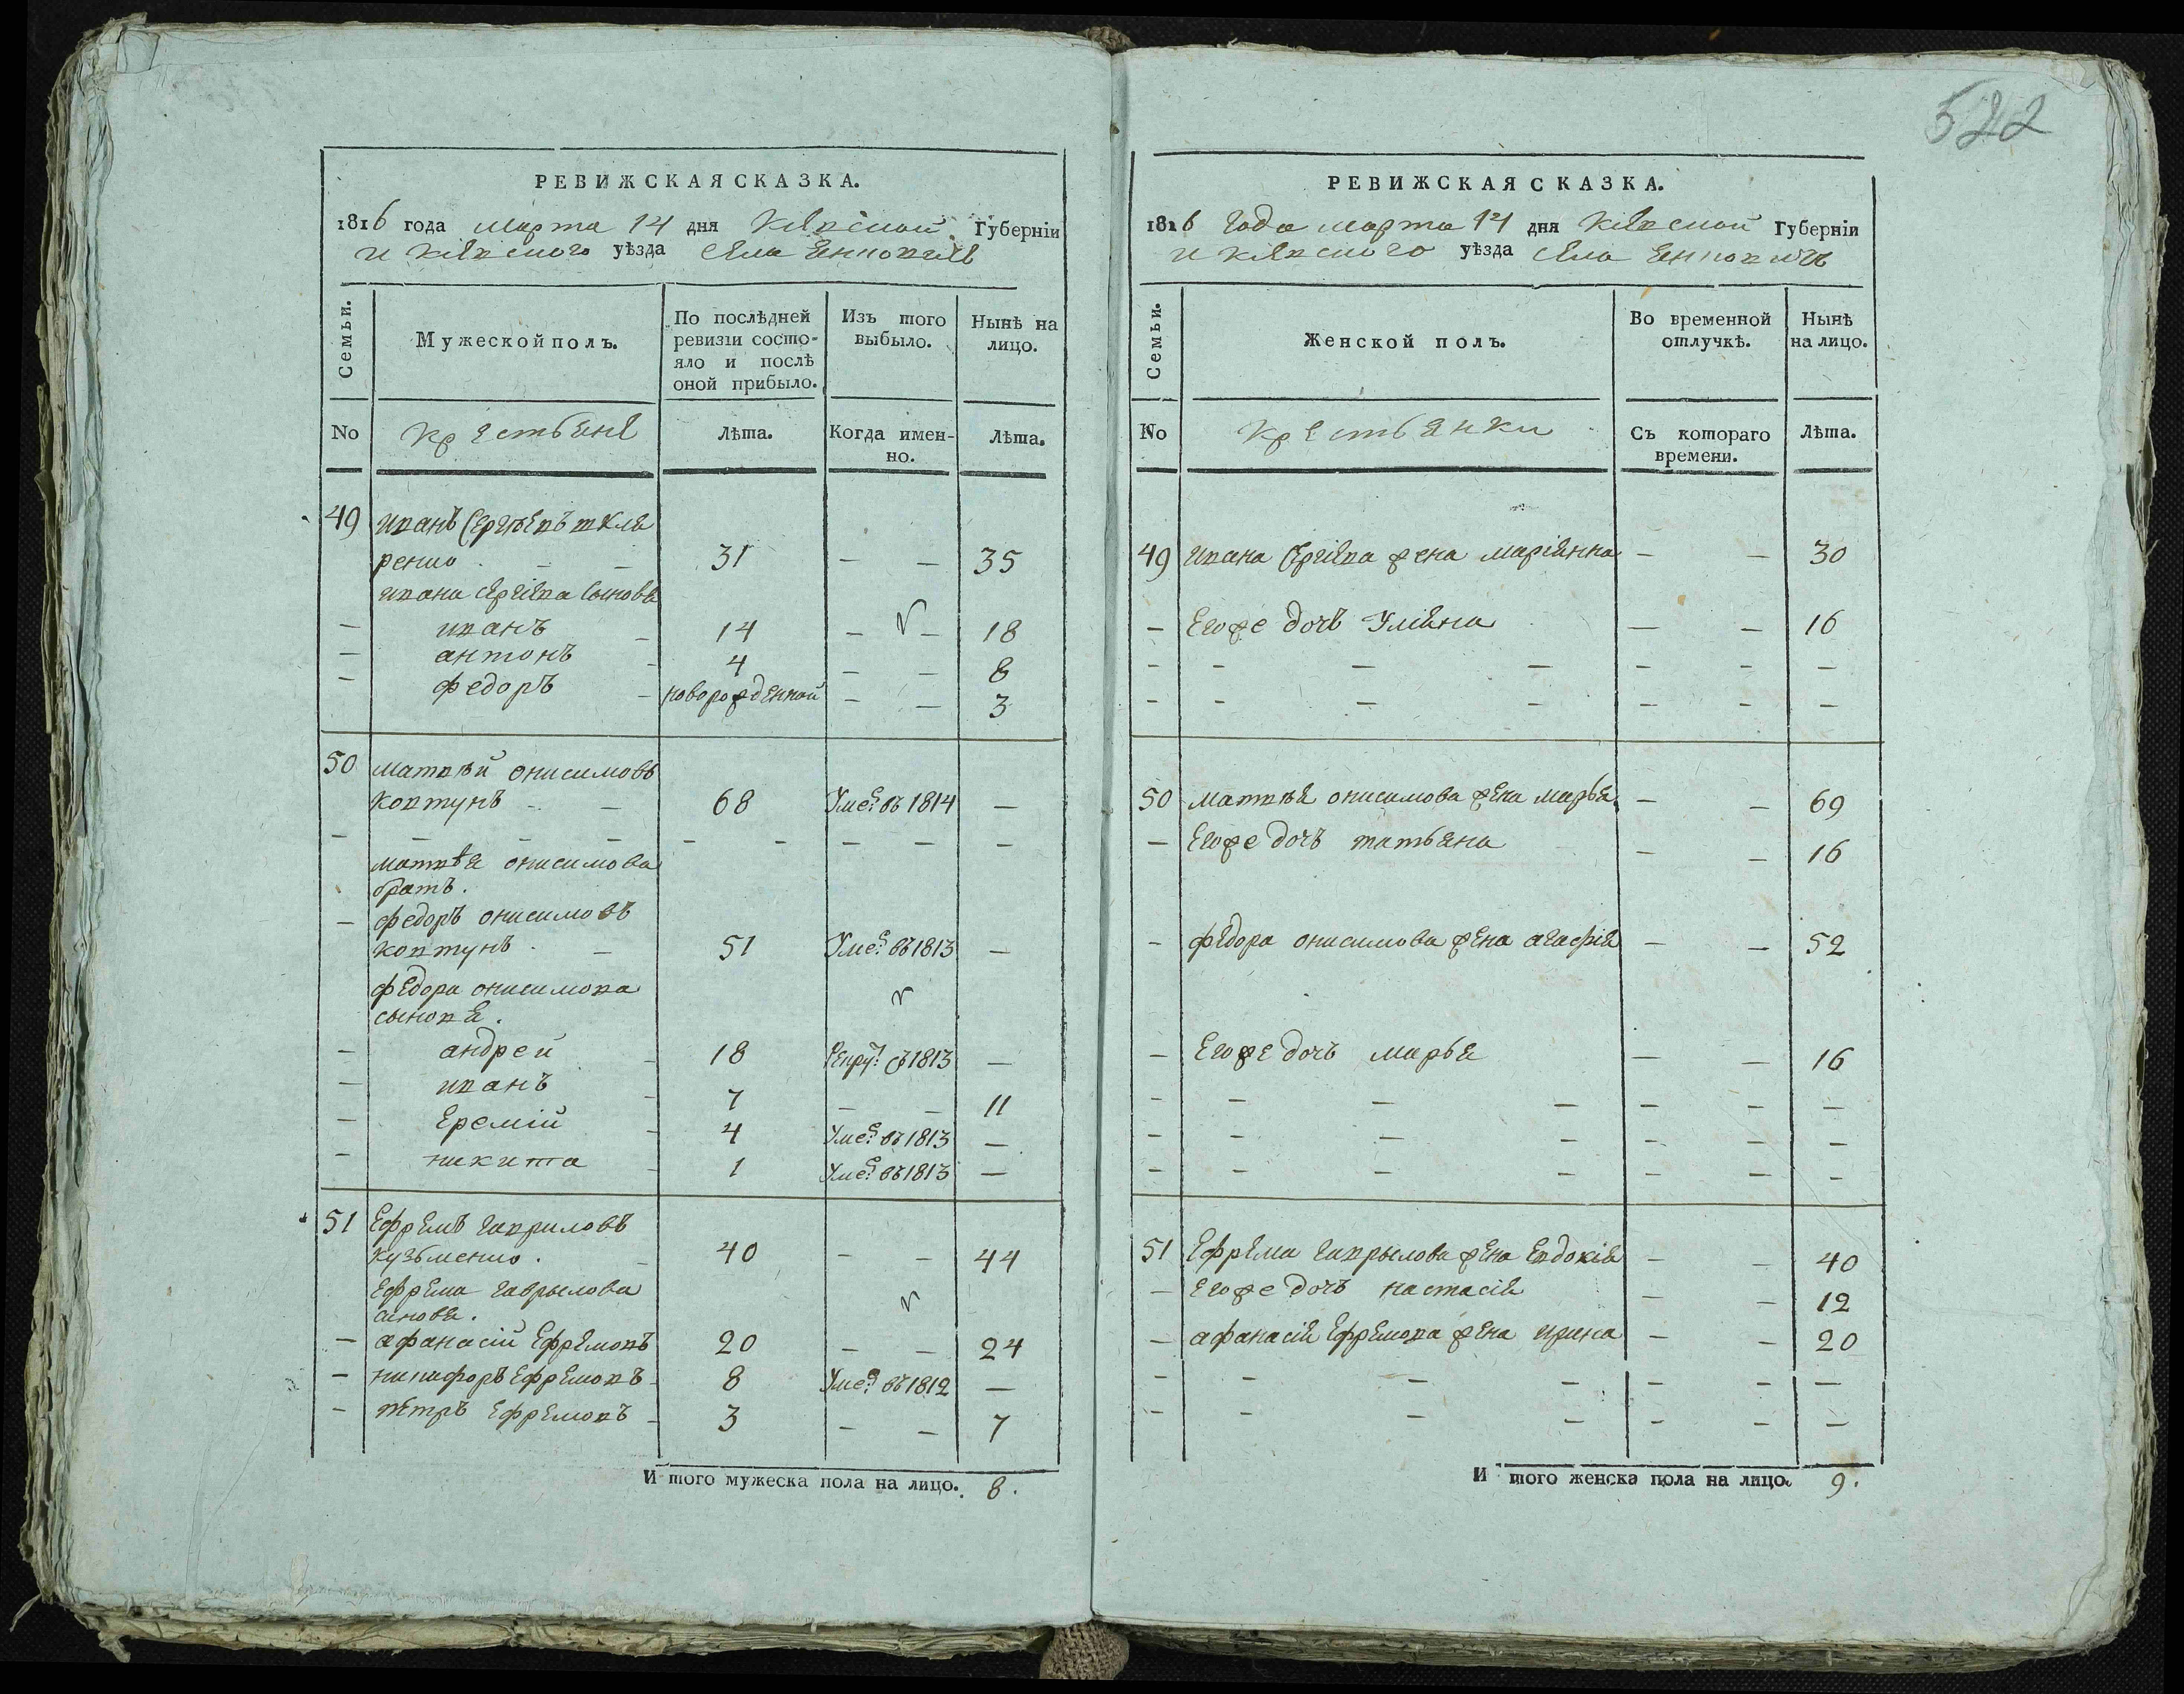 522
РЕВИЖСКАЯ СКАЗКА.
1816 года марта 14 дня Кіевской Губерніи
и Кіевского уѣзда села
Семьи. Мужеской полъ. По послѣдней ревизіи состояло и послѣ оной прибыло. Изъ того выбыло. Нынѣ на лицо.
No Крестьяне Лѣта. Когда именно. Лѣта.
49 Иванъ Сергѣевъ шкля
ренко - - 31 - - 35
Ивана Сергіева сыновя
- иванъ - 14 - - 18
- антонъ - 4 - - 8
- федоръ - новорожденной - - 3
50 матвѣй онисимовъ
ковтунъ - - 68 Уме: въ 1814 -
- - - - - - - - -
матвѣя онисимова
братъ.
- федоръ онисимовъ
ковтунъ - - 51 Уме: въ 1813 -
федора онисимова
сыновя.
- андрей - 18 Рекру: въ 1813 -
- иванъ - 7 - - 11
- Еремій - 4 Уме: въ 1813 -
- никита - 1 Уме: въ 1813 -
51 Ефремъ гавриловъ
кузьменко. - 40 - - 44
Ефрема гаврылова
синовя.
- афанасій Ефремовъ 20 - - 24
- никифоръ Ефремовъ - 8 Уме: въ 1812 -
- пѣтръ Ефремовъ - 3 - - 7
И того мужеска пола на лицо. 8.
РЕВИЖСКАЯ СКАЗКА.
1816 года марта 14 дня Кіевской Губерніи
и Кіевского уѣзда села
Семьи. Женской полъ. Во временной отлучкѣ. Нынѣ на лицо.
No Крестьянки Съ котораго времени. Лѣта.
49 Ивана Сергіева жена маріянна - - 30
- Егоже дочь Уліяна - - 16
- - - - - - -
- - - - - - -
50 матвѣя онисимова жена марья - - 69
- Егоже дочъ татьяна - - 16
- федора онисимова жена агафія - - 52
- Егоже дочъ марья - - 16
- - - - - - -
- - - - - - -
- - - - - - -
51 Ефрема гаврылова жена Евдокія - - 40
- Егоже дочъ настасія - - 12
- афанасія Ефремова жена ирина - - 20
- - - - - - -
- - - - - - -
И того женска пола на лицо. 9.